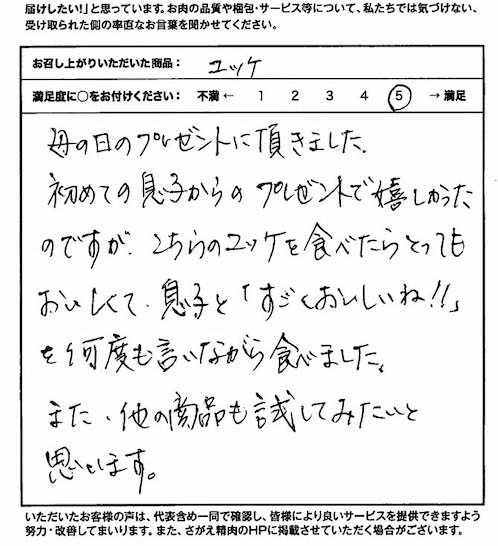 届けしたい!」と思っています。お肉の品質や梱包・サービス等について、私たちでは気づけない、
受け取られた側の率直なお言葉を聞かせてください。
お召し上がりいただいた商品： ユッケ
満足度に○をお付けください： 不満 ← 1 2 3 4 5 → 満足
母の日のプレゼントに頂きました。
初めての息子からのプレゼントで嬉しかった
のですが、こちらのユッケを食べたらとっても
おいしくて、息子と「すごくおいしいね!!」
を何度も言いながら食べました。
また、他の商品も試してみたいと
思います。
いただいたお客様の声は、代表含め一同で確認し、皆様により良いサービスを提供できますよう
努力・改善してまいります。また、さがえ精肉のHPに掲載させていただく場合がございます。